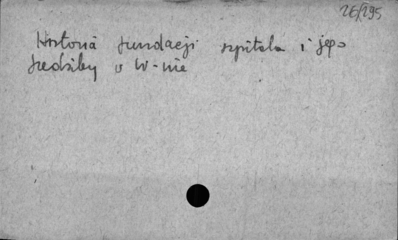 26/295
Historia fundacji szpitala i jego
siedziby w W-nie